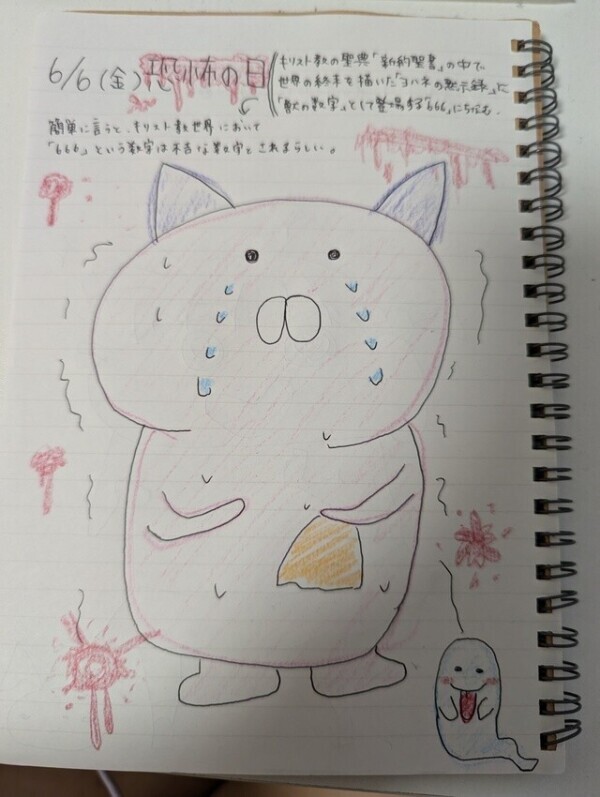 6/6(金)恐怖の日
キリスト教の聖典「新約聖書」の中で
世界の終末を描いた「ヨハネの黙示録」に
「獣の数字」として登場する「666」にちなむ.
簡単に言うと、キリスト教世界において
「666」という数字は不吉な数字とされるらしい。